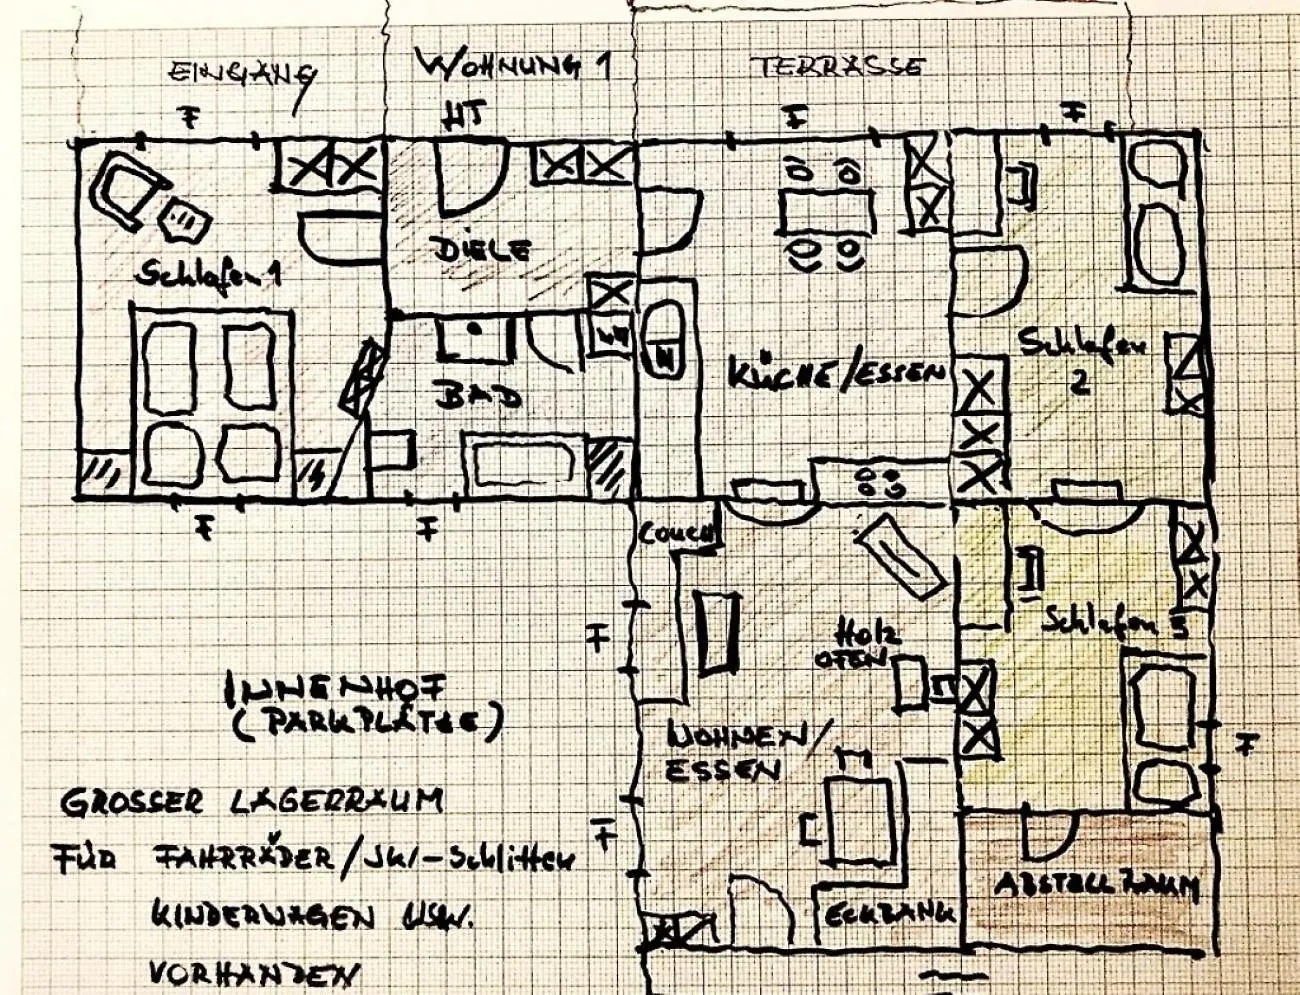 EINGANG
WOHNUNG 1
TERRASSE
F
HT
F
F
DIELE
Schlafen 1
Schlafen
2
KÜCHE/ESSEN
BAD
F
F
COUCH
F
HOLZ
OFEN
Schlafen 3
INNENHOF
(PARKPLÄTZE)
WOHNEN/
ESSEN
F
GROSSER LAGERRAUM
F
FÜR FAHRRÄDER/SKI-Schlitten
ABSTELLRAUM
KINDERWAGEN USW.
ECKBANK
VORHANDEN